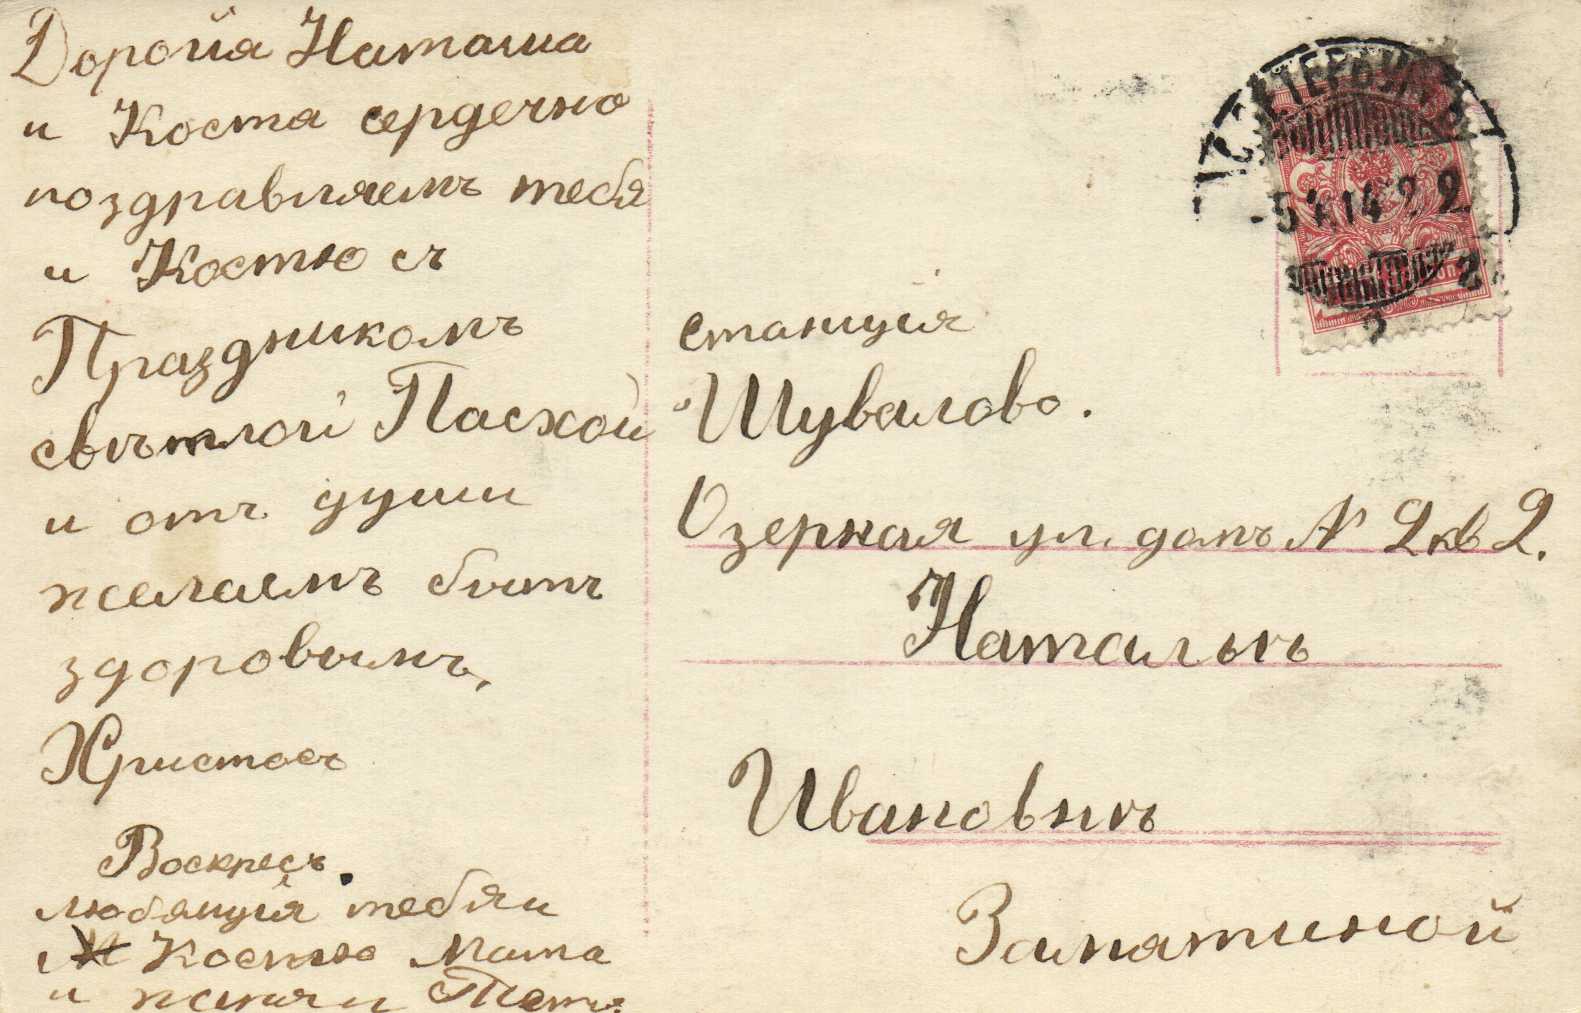 Доройя Наташа
и Коста сердечно
поздравляемъ тебя
и Костю съ
Праздникомъ
свѣтлой Пасхой
и отъ души
желаемъ быть
здоровымъ,
Христосъ
Воскресъ.
любящія тебя и
и Костю мата
и женя и Петя
станція
Шувалово.
Озерная ул. домъ N 2 кв 2.
Натальѣ
Ивановнѣ
Замятиной
С. ПЕТЕРБУРГЪ
5 4 14
2